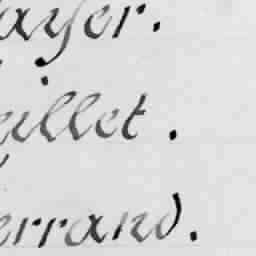 ayer.
illet.
errand.